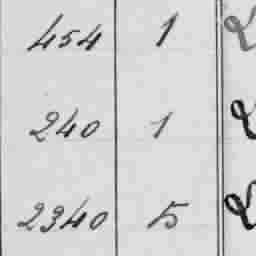 454 1
240 1
2340 5